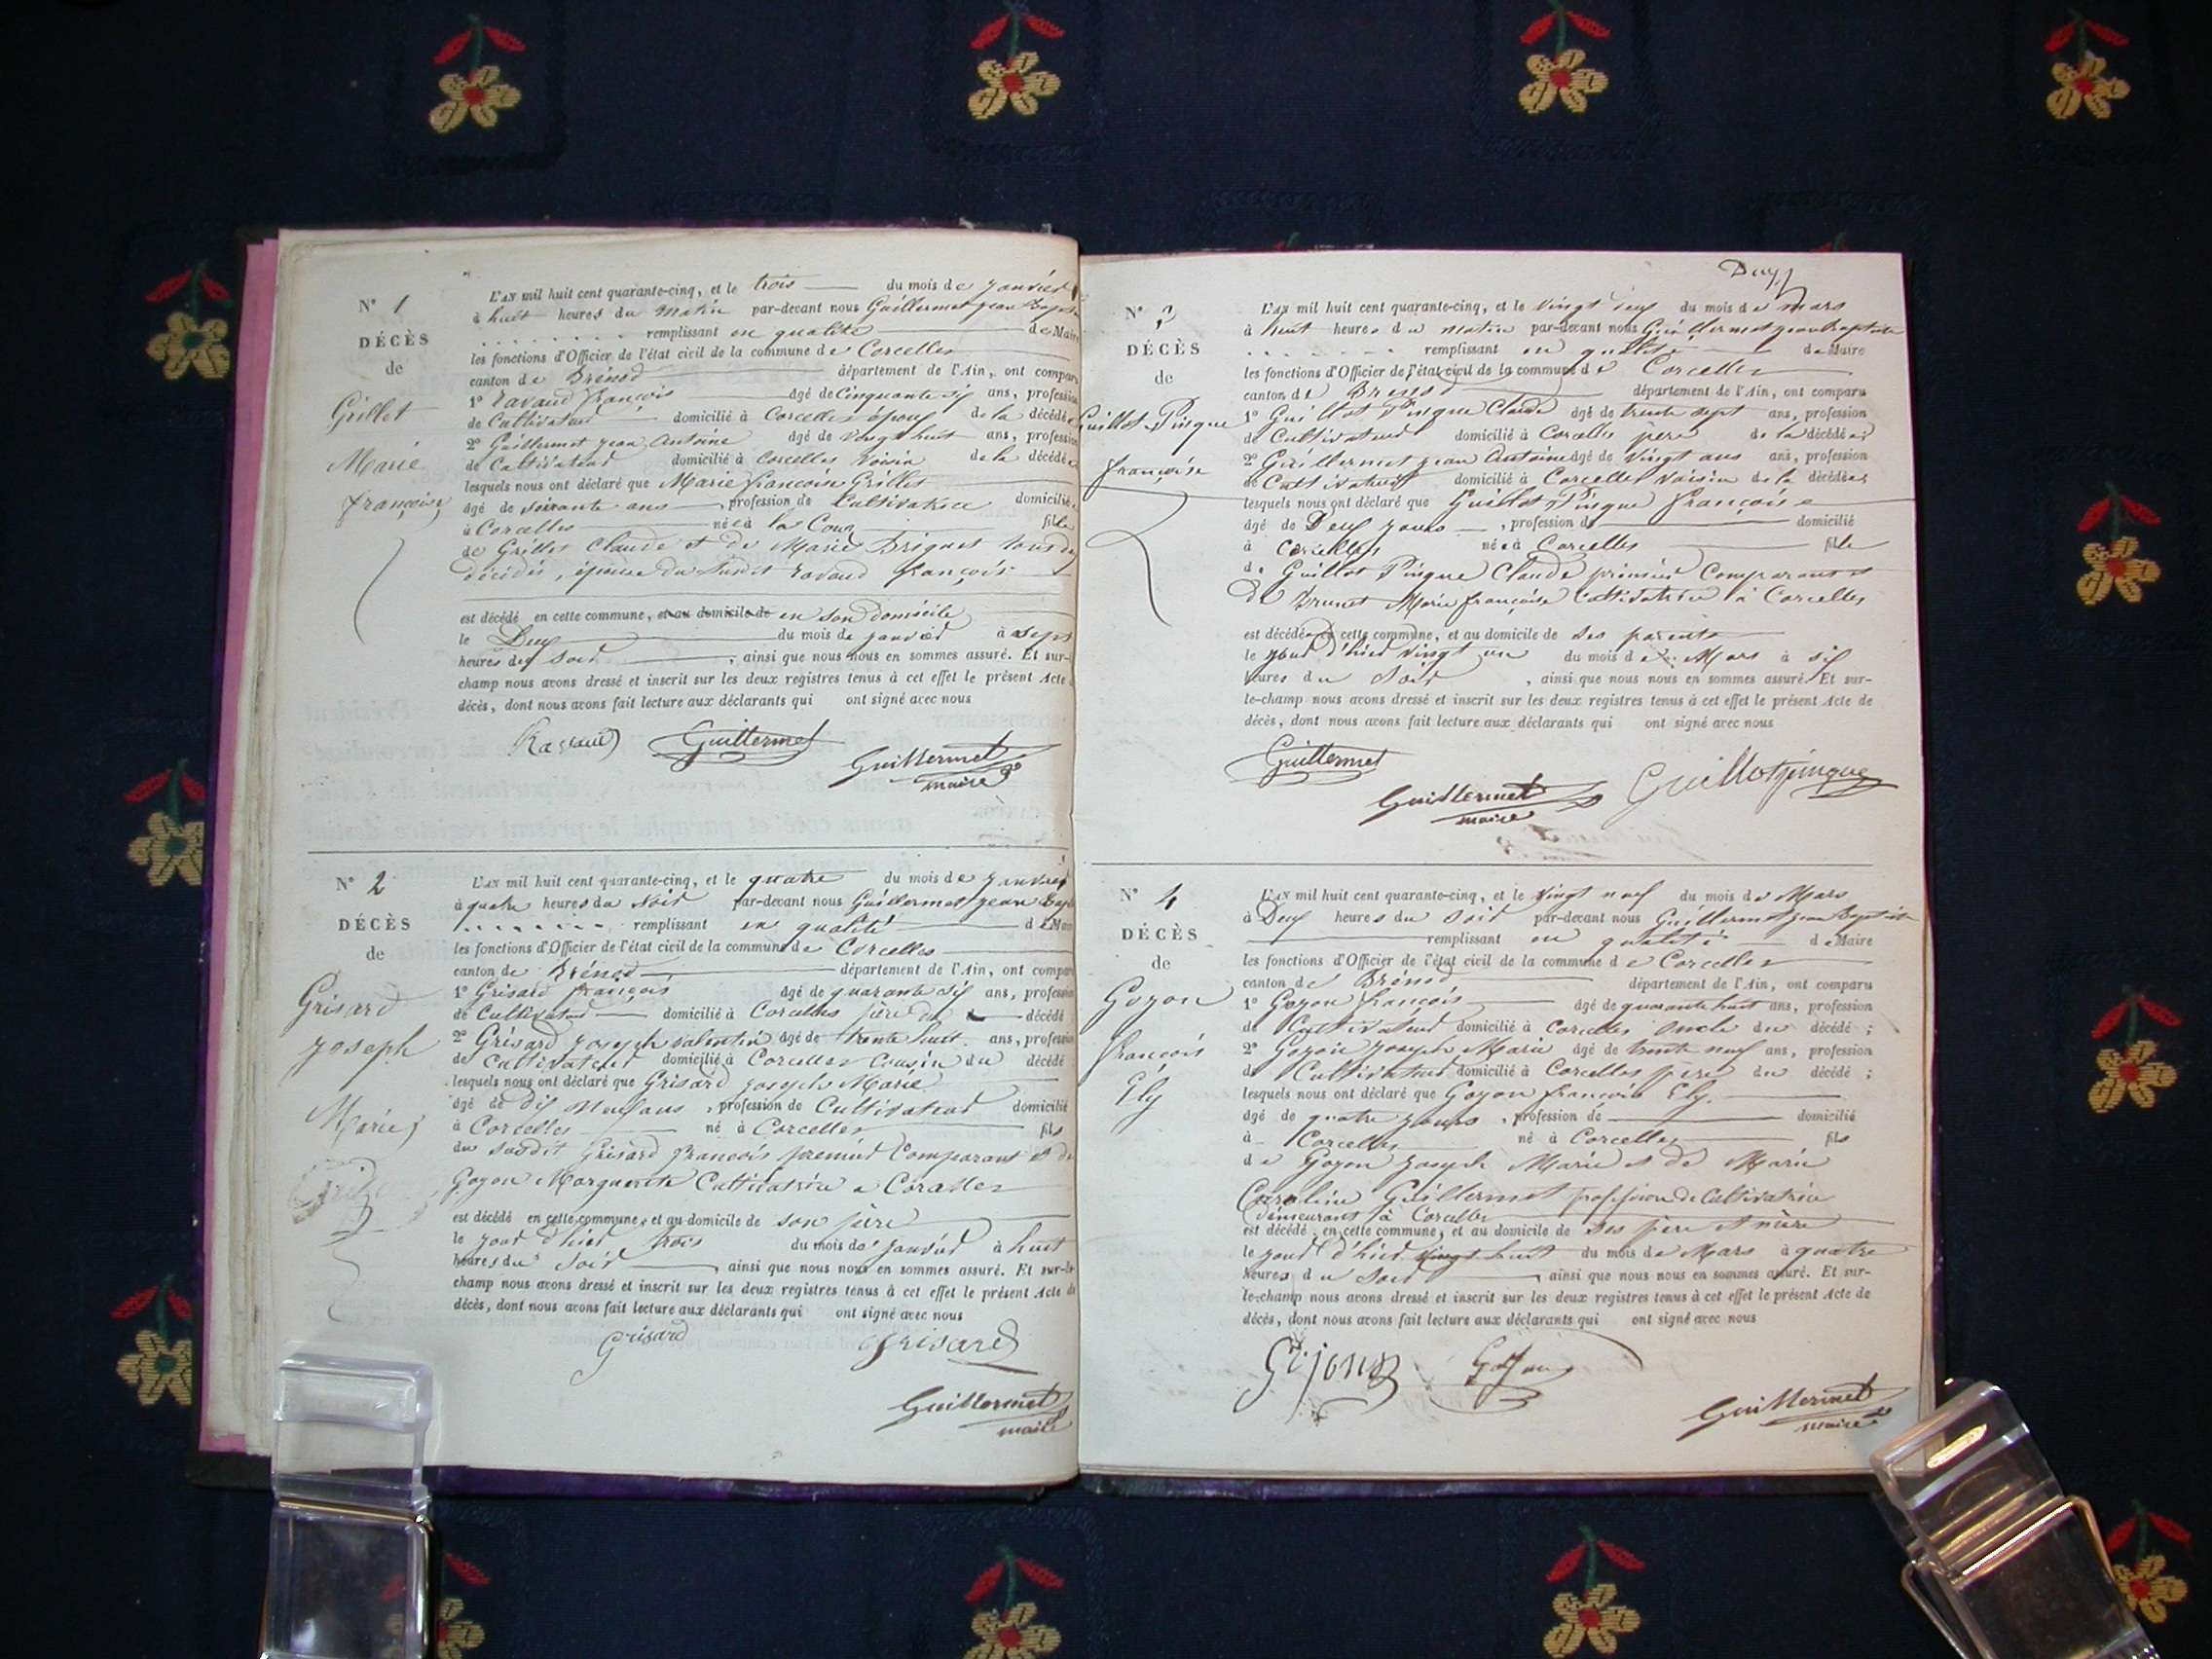 N° 1
DÉCÈS
de
Grillet
Marie
françoise
L'AN mil huit cent quarante-cinq, et le trois du mois de janvier
à huit heures du matin par-devant nous Guillermet jean Bapt
remplissant en qualité de Maire
les fonctions d'Officier de l'état civil de la commune de Corcelles
canton de Brénod département de l'Ain, ont comparu
1° Ravaud françois âgé de Cinquante six ans, profession
de Cultivateur domicilié à Corcelles époux de la décédée
2° Guillermet jean Antoine âgé de vingt huit ans, profession
de Cultivateur domicilié à Corcelles voisin de la décédée
lesquels nous ont déclaré que Marie françoise Grillet
âgé de soixante ans, profession de Cultivatrice domiciliée
à Corcelles née à la Coux fille
de Grillet Claude et de Marie Briguet tous deux
décédés, épouse du susdit Ravaud françois
est décédé en cette commune, et au domicile de en son domicile
le Deux du mois de janvier à sept
heures du soir, ainsi que nous nous en sommes assuré. Et sur-
champ nous avons dressé et inscrit sur les deux registres tenus à cet effet le présent Acte
décès, dont nous avons fait lecture aux déclarants qui ont signé avec nous
Ravaud Guillermet Guillermet
maire
N° 2
DÉCÈS
de
Grisard
joseph
Marie
L'AN mil huit cent quarante-cinq, et le quatre du mois de janvier
à quatre heures du soir par-devant nous Guillermet jean Bapt
remplissant en qualité de Maire
les fonctions d'Officier de l'état civil de la commune de Corcelles
canton de Brénod département de l'Ain, ont comparu
1° Grisard françois âgé de quarante six ans, profession
de Cultivateur domicilié à Corcelles père du décédé
2° Grisard joseph valentin âgé de trente huit ans, profession
de Cultivateur domicilié à Corcelles Cousin du décédé
lesquels nous ont déclaré que Grisard joseph Marie
âgé de dix neuf ans, profession de Cultivateur domicilié
à Corcelles né à Corcelles fils
du susdit Grisard françois premier Comparant et de
Goyon Marguerite Cultivatrice a Corcelles
est décédé en cette commune, et au domicile de son père
le jour d'hier trois du mois de janvier à huit
heures du soir, ainsi que nous nous en sommes assuré. Et sur-le
champ nous avons dressé et inscrit sur les deux registres tenus à cet effet le présent Acte de
décès, dont nous avons fait lecture aux déclarants qui ont signé avec nous
Grisard Grisard
Guillermet
maire
Deux
N° 3
DÉCÈS
de
Guillot Pingue
françoise
L'AN mil huit cent quarante-cinq, et le vingt deux du mois de mars
à huit heures du matin par-devant nous Guillermet jean baptiste
remplissant en qualité de Maire
les fonctions d'Officier de l'état civil de la commune de Corcelles
canton de Brénod département de l'Ain, ont comparu
1° Guillot Pingue Claude âgé de trente sept ans, profession
de Cultivateur domicilié à Corcelles père de la décédée
2° Guillermet jean Antoine âgé de vingt ans ans, profession
de Cultivateur domicilié à Corcelles voisin de la décédée
lesquels nous ont déclaré que Guillot Pingue françoise
âgé de Deux jours, profession de domicilié
à Corcelles née à Corcelles fille
de Guillot Pingue Claude premier Comparant et
De Brunet Marie françoise Cultivatrice à Corcelles
est décédée en cette commune, et au domicile de ses parents
le jour d'hier vingt un du mois de Mars à six
heures du soir, ainsi que nous nous en sommes assuré. Et sur-
le-champ nous avons dressé et inscrit sur les deux registres tenus à cet effet le présent Acte de
décès, dont nous avons fait lecture aux déclarants qui ont signé avec nous
Guillermet Guillotpingue
Guillermet
maire
N° 4
DÉCÈS
de
Goyon
françois
Ely
L'AN mil huit cent quarante-cinq, et le vingt neuf du mois de Mars
à Deux heures du soir par-devant nous Guillermet jean Baptiste
remplissant en qualité de Maire
les fonctions d'Officier de l'état civil de la commune de Corcelles
canton de Brénod département de l'Ain, ont comparu
1° Goyon françois âgé de quarante huit ans, profession
de Cultivateur domicilié à Corcelles oncle du décédé ;
2° Goyon joseph Marie âgé de trente neuf ans, profession
de Cultivateur domicilié à Corcelles père du décédé ;
lesquels nous ont déclaré que Goyon françois Ely.
âgé de quatre jours, profession de domicilié
à Corcelles né à Corcelles fils
de Goyon joseph Marie et de Marie
Caroline Guillermet profession de Cultivatrice
demeurants à Corcelles
est décédé en cette commune, et au domicile de ses père et mère
le jour d'hier vingt huit du mois de Mars à quatre
heures du soir, ainsi que nous nous en sommes assuré. Et sur-
le-champ nous avons dressé et inscrit sur les deux registres tenus à cet effet le présent Acte de
décès, dont nous avons fait lecture aux déclarants qui ont signé avec nous
Goyon
Guillermet
maire